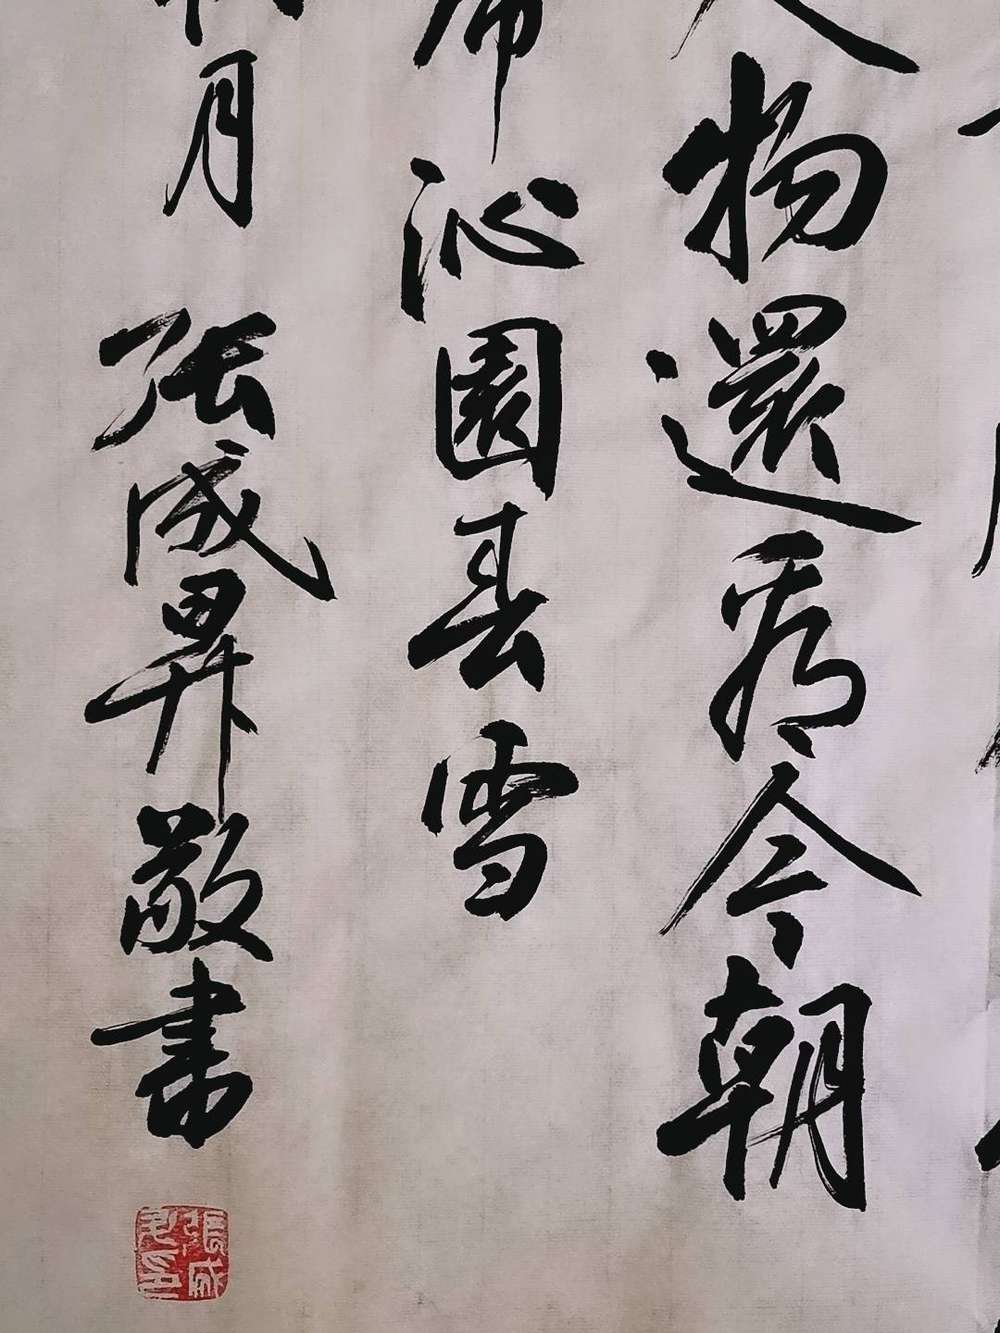 人物還看今朝
席沁園春雪
月 張成昇敬書
張成昇印